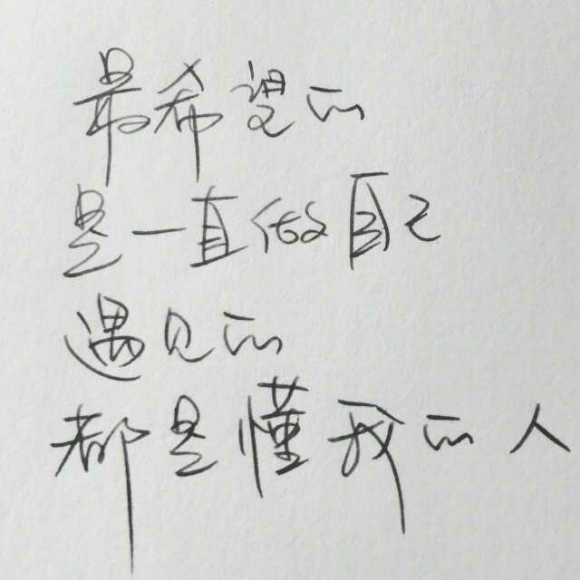 最希望的
是一直做自己
遇见的
都是懂我的人